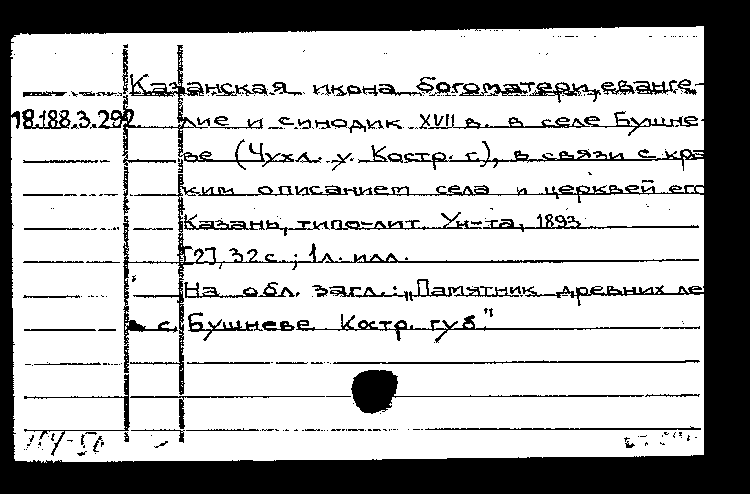 Казанская икона богоматери, еванге-
18.188.3.292 лие и синодик XVII в. в селе Бушне-
ве (Чухл. у. Костр. г.), в связи с кра
ким описанием села и церквей его
Казань, типо-лит. Ун-та, 1893
[2], 32 с.; 1 л. илл.
На обл. загл.: „Памятник древних ле
в с. Бушневе Костр. губ."